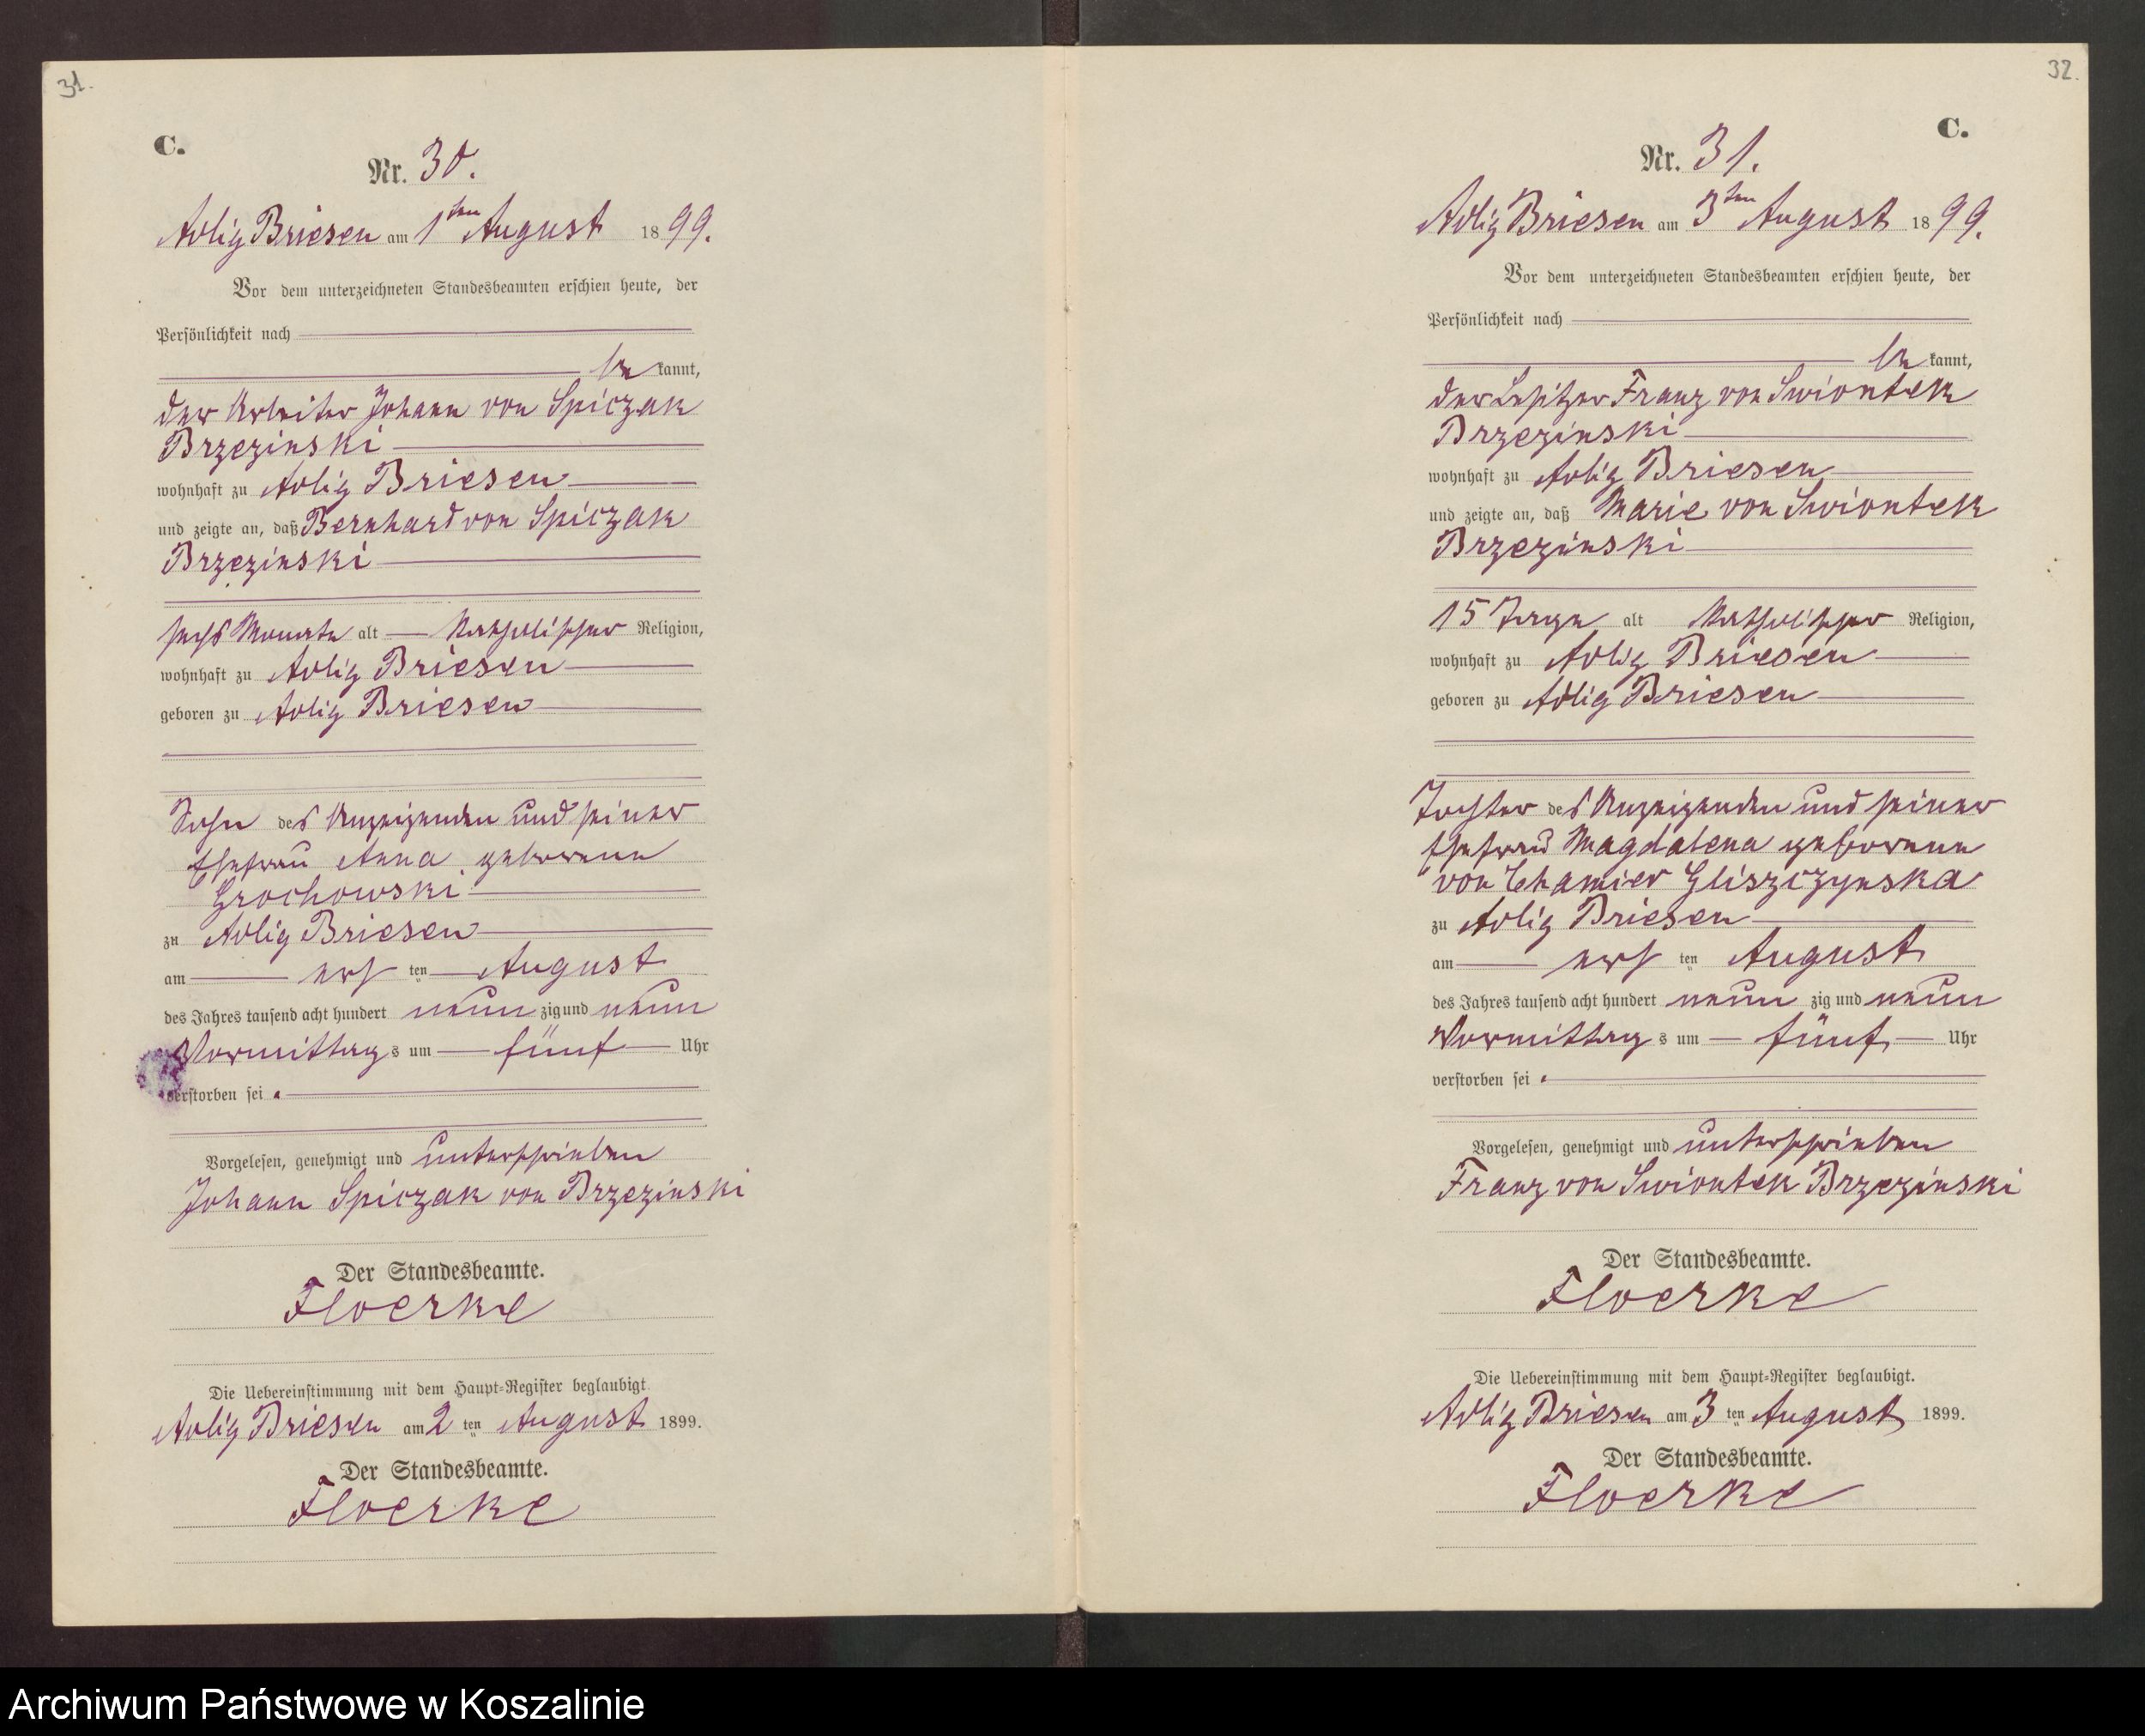 31.
C.
Nr. 30.
Adlig Briesen am 1ten August 1899.
Vor dem unterzeichneten Standesbeamten erschien heute, der
Persönlichkeit nach
be kannt,
der Arbeiter Johann von Spiczak
Brzezinski
wohnhaft zu Adlig Briesen
und zeigte an, daß Bernhard von Spiczak
Brzezinski
sechs Monate alt katholischer Religion,
wohnhaft zu Adlig Briesen
geboren zu Adlig Briesen
Sohn des Anzeigenden und seiner
Ehefrau Anna geborenen
Grochowski
zu Adlig Briesen
am ers ten August
des Jahres tausend acht hundert neun zig und neun
Vormittag s um fünf Uhr
verstorben sei.
Vorgelesen, genehmigt und unterschrieben
Johann Spiczak von Brzezinski
Der Standesbeamte.
Floerke
Die Uebereinstimmung mit dem Haupt-Register beglaubigt
Adlig Briesen am 2 ten August 1899.
Der Standesbeamte.
Floerke
32.
C.
Nr. 31.
Adlig Briesen am 3ten August 1899.
Vor dem unterzeichneten Standesbeamten erschien heute, der
Persönlichkeit nach
be kannt,
der Besitzer Franz von Swiontek
Brzezinski
wohnhaft zu Adlig Briesen
und zeigte an, daß Marie von Swiontek
Brzezinski
15 Tage alt katholischer Religion,
wohnhaft zu Adlig Briesen
geboren zu Adlig Briesen
Tochter des Anzeigenden und seiner
Ehefrau Magdalena geborenen
von Chamier Gliszczynska
zu Adlig Briesen
am ers ten August
des Jahres tausend acht hundert neun zig und neun
Vormittag s um fünf Uhr
verstorben sei.
Vorgelesen, genehmigt und unterschrieben
Franz von Swiontek Brzezinski
Der Standesbeamte.
Floerke
Die Uebereinstimmung mit dem Haupt-Register beglaubigt.
Adlig Briesen am 3 ten August 1899.
Der Standesbeamte.
Floerke
Archiwum Państwowe w Koszalinie